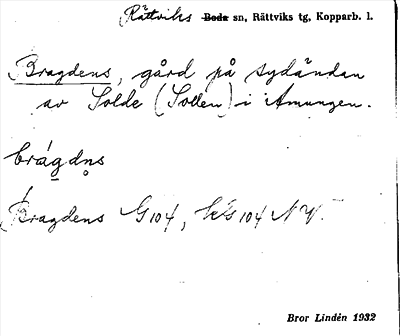 Rättviks Boda sn, Rättviks tg, Kopparb. l.
Bragdens, gård på sydändan
av Solde (Sollen) i Amungen.
brágdn̥s
Bragdens G 104, k/s 104 NV.
Bror Lindén 1932